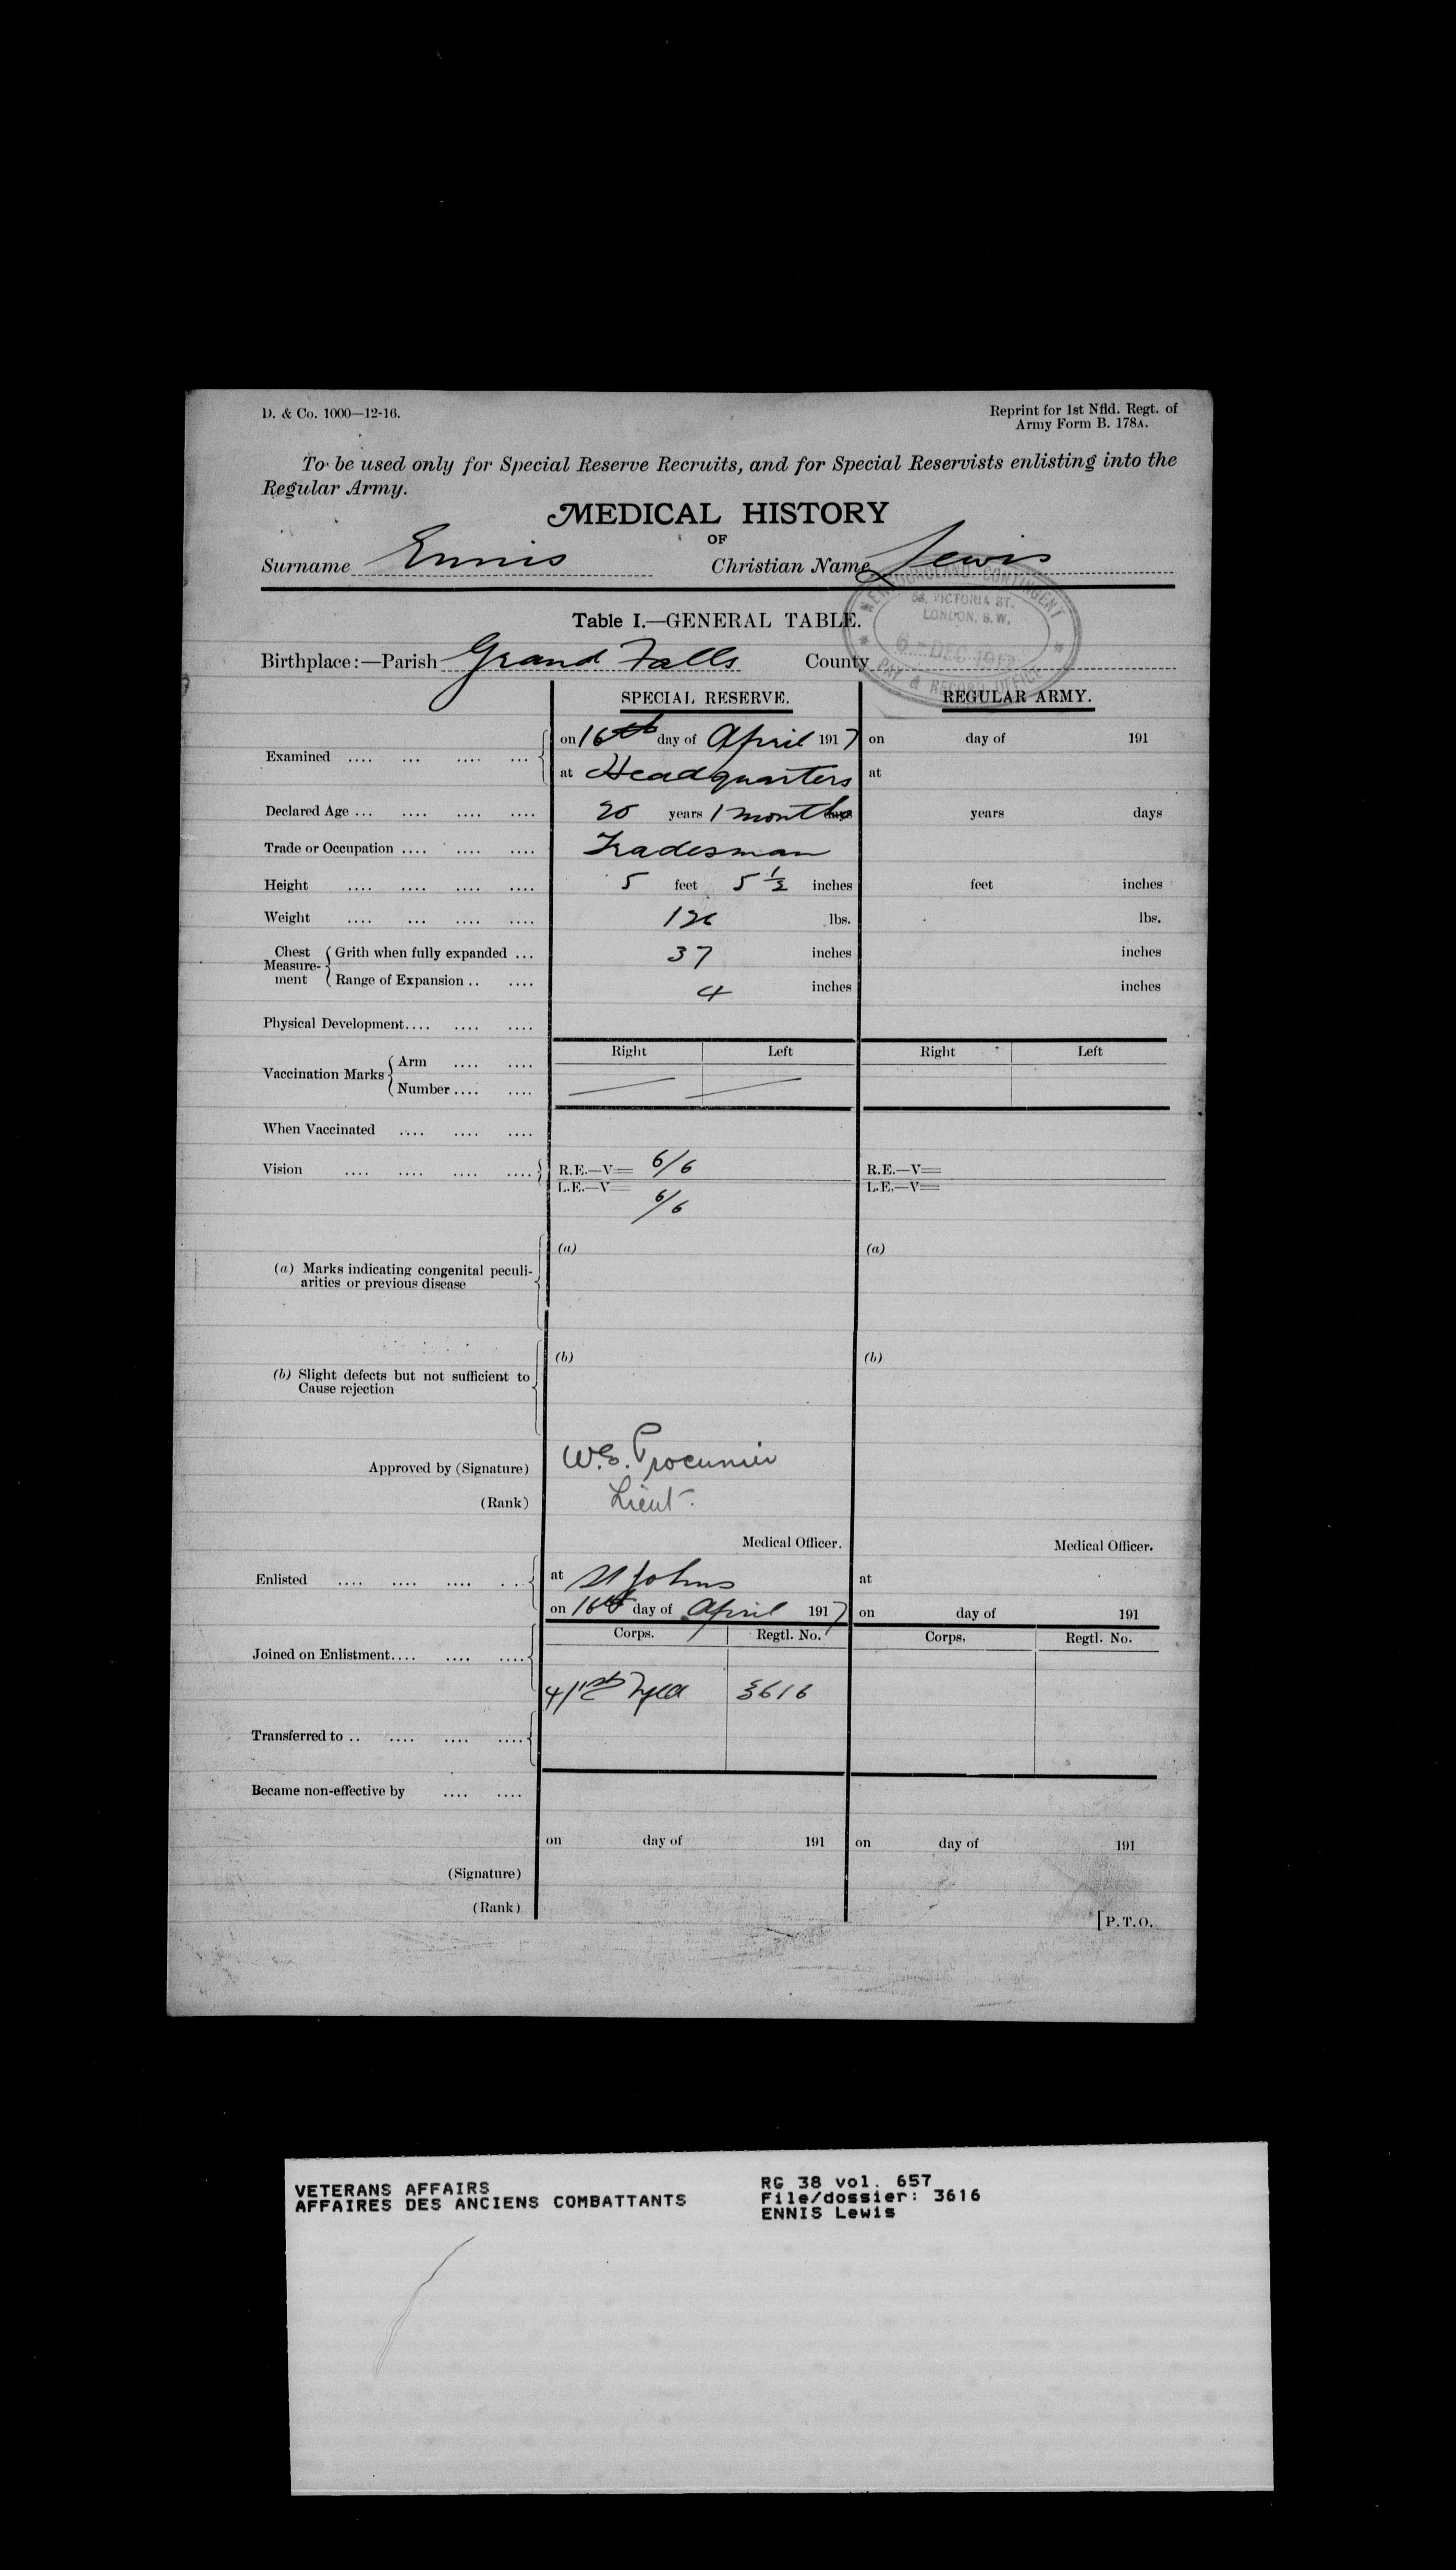 D. & Co. 1000—12-16.
Reprint for 1st Nfld. Regt. of
Army Form B. 178A.
To be used only for Special Reserve Recruits, and for Special Reservists enlisting into the
Regular Army.
MEDICAL HISTORY
OF
Surname Ennis Christian Name Lewis
NEWFOUNDLAND CONTINGENT
58, VICTORIA ST.
LONDON, S.W.
6 - DEC 1917
PAY & RECORD OFFICE
Table I.—GENERAL TABLE.
Birthplace:—Parish Grand Falls County
SPECIAL RESERVE. REGULAR ARMY.
Examined .... ... .... ... on 16th day of April 1917 on day of 191
at Headquarters at
Declared Age ... .... .... .... 20 years 1 month days years days
Trade or Occupation .... .... .... Tradesman
Height .... .... .... .... 5 feet 5 1/2 inches feet inches
Weight .... ... .... .... 126 lbs. lbs.
Chest Measurement Grith when fully expanded ... 37 inches inches
Range of Expansion .. .... 4 inches inches
Physical Development.... .... ....
Right Left Right Left
Vaccination Marks Arm .... ....
Number .... ....
When Vaccinated .... .... ....
Vision .... .... .... .... R.E.—V= 6/6 R.E.—V=
L.E.—V= 6/6 L.E.—V=
(a) (a)
(a) Marks indicating congenital peculi-
arities or previous disease
(b) (b)
(b) Slight defects but not sufficient to
Cause rejection
Approved by (Signature) W.E. Procunier
(Rank) Lieut.
Medical Officer. Medical Officer.
Enlisted .... .... .... ... at St Johns at
on 16th day of April 1917 on day of 191
Corps. Regtl. No. Corps. Regtl. No.
Joined on Enlistment.... .... ....
1st Nfld 3616
Transferred to .. .... .... ....
Became non-effective by .... ....
on day of 191 on day of 191
(Signature)
(Rank)
[P.T.O.
VETERANS AFFAIRS
AFFAIRES DES ANCIENS COMBATTANTS
RG 38 vol. 657
File/dossier: 3616
ENNIS Lewis